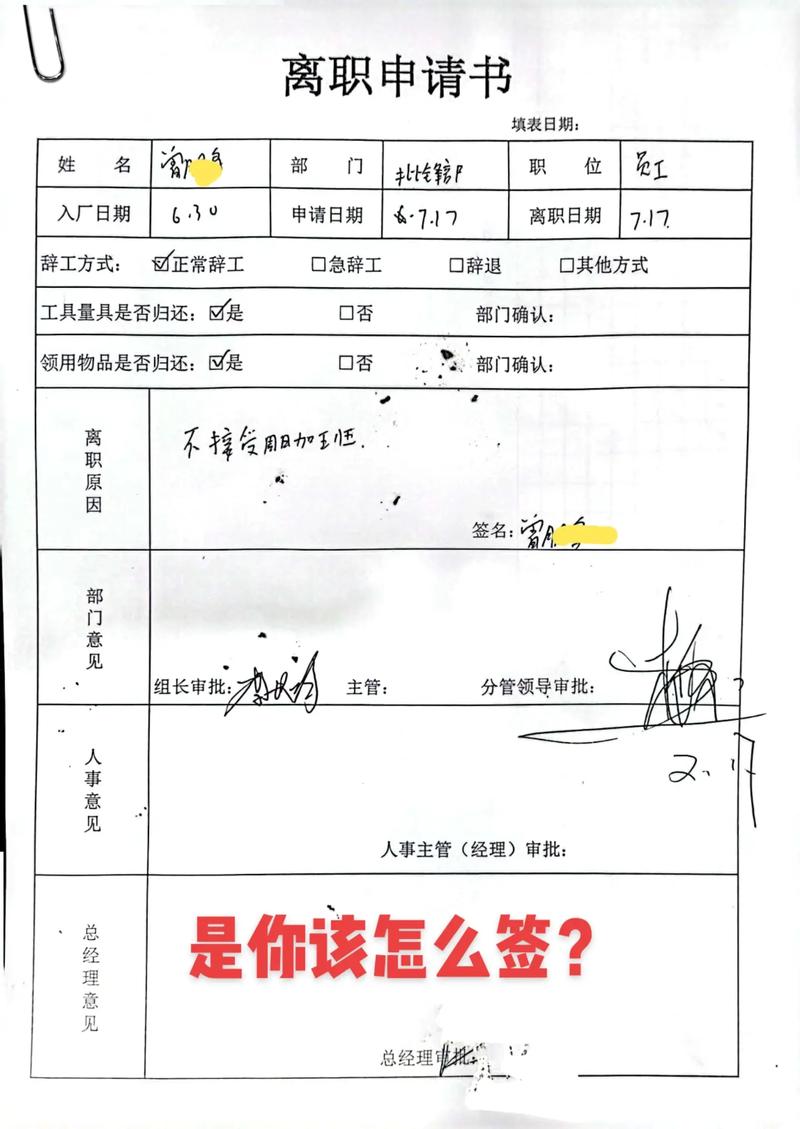 离职申请书
填表日期：
姓 名 曾 部 门 职 位 员工
入厂日期 6.30 申请日期 7.17 离职日期 7.17
辞工方式： ☑正常辞工 □急辞工 □辞退 □其他方式
工具量具是否归还：☑是 □否 部门确认：
领用物品是否归还：☑是 □否 部门确认：
离职原因
不接受周日加班.
签名：曾
部门意见
组长审批： 主管： 分管领导审批：
人事意见
人事主管（经理）审批：
总经理意见
是你该怎么签？
总经理审批：